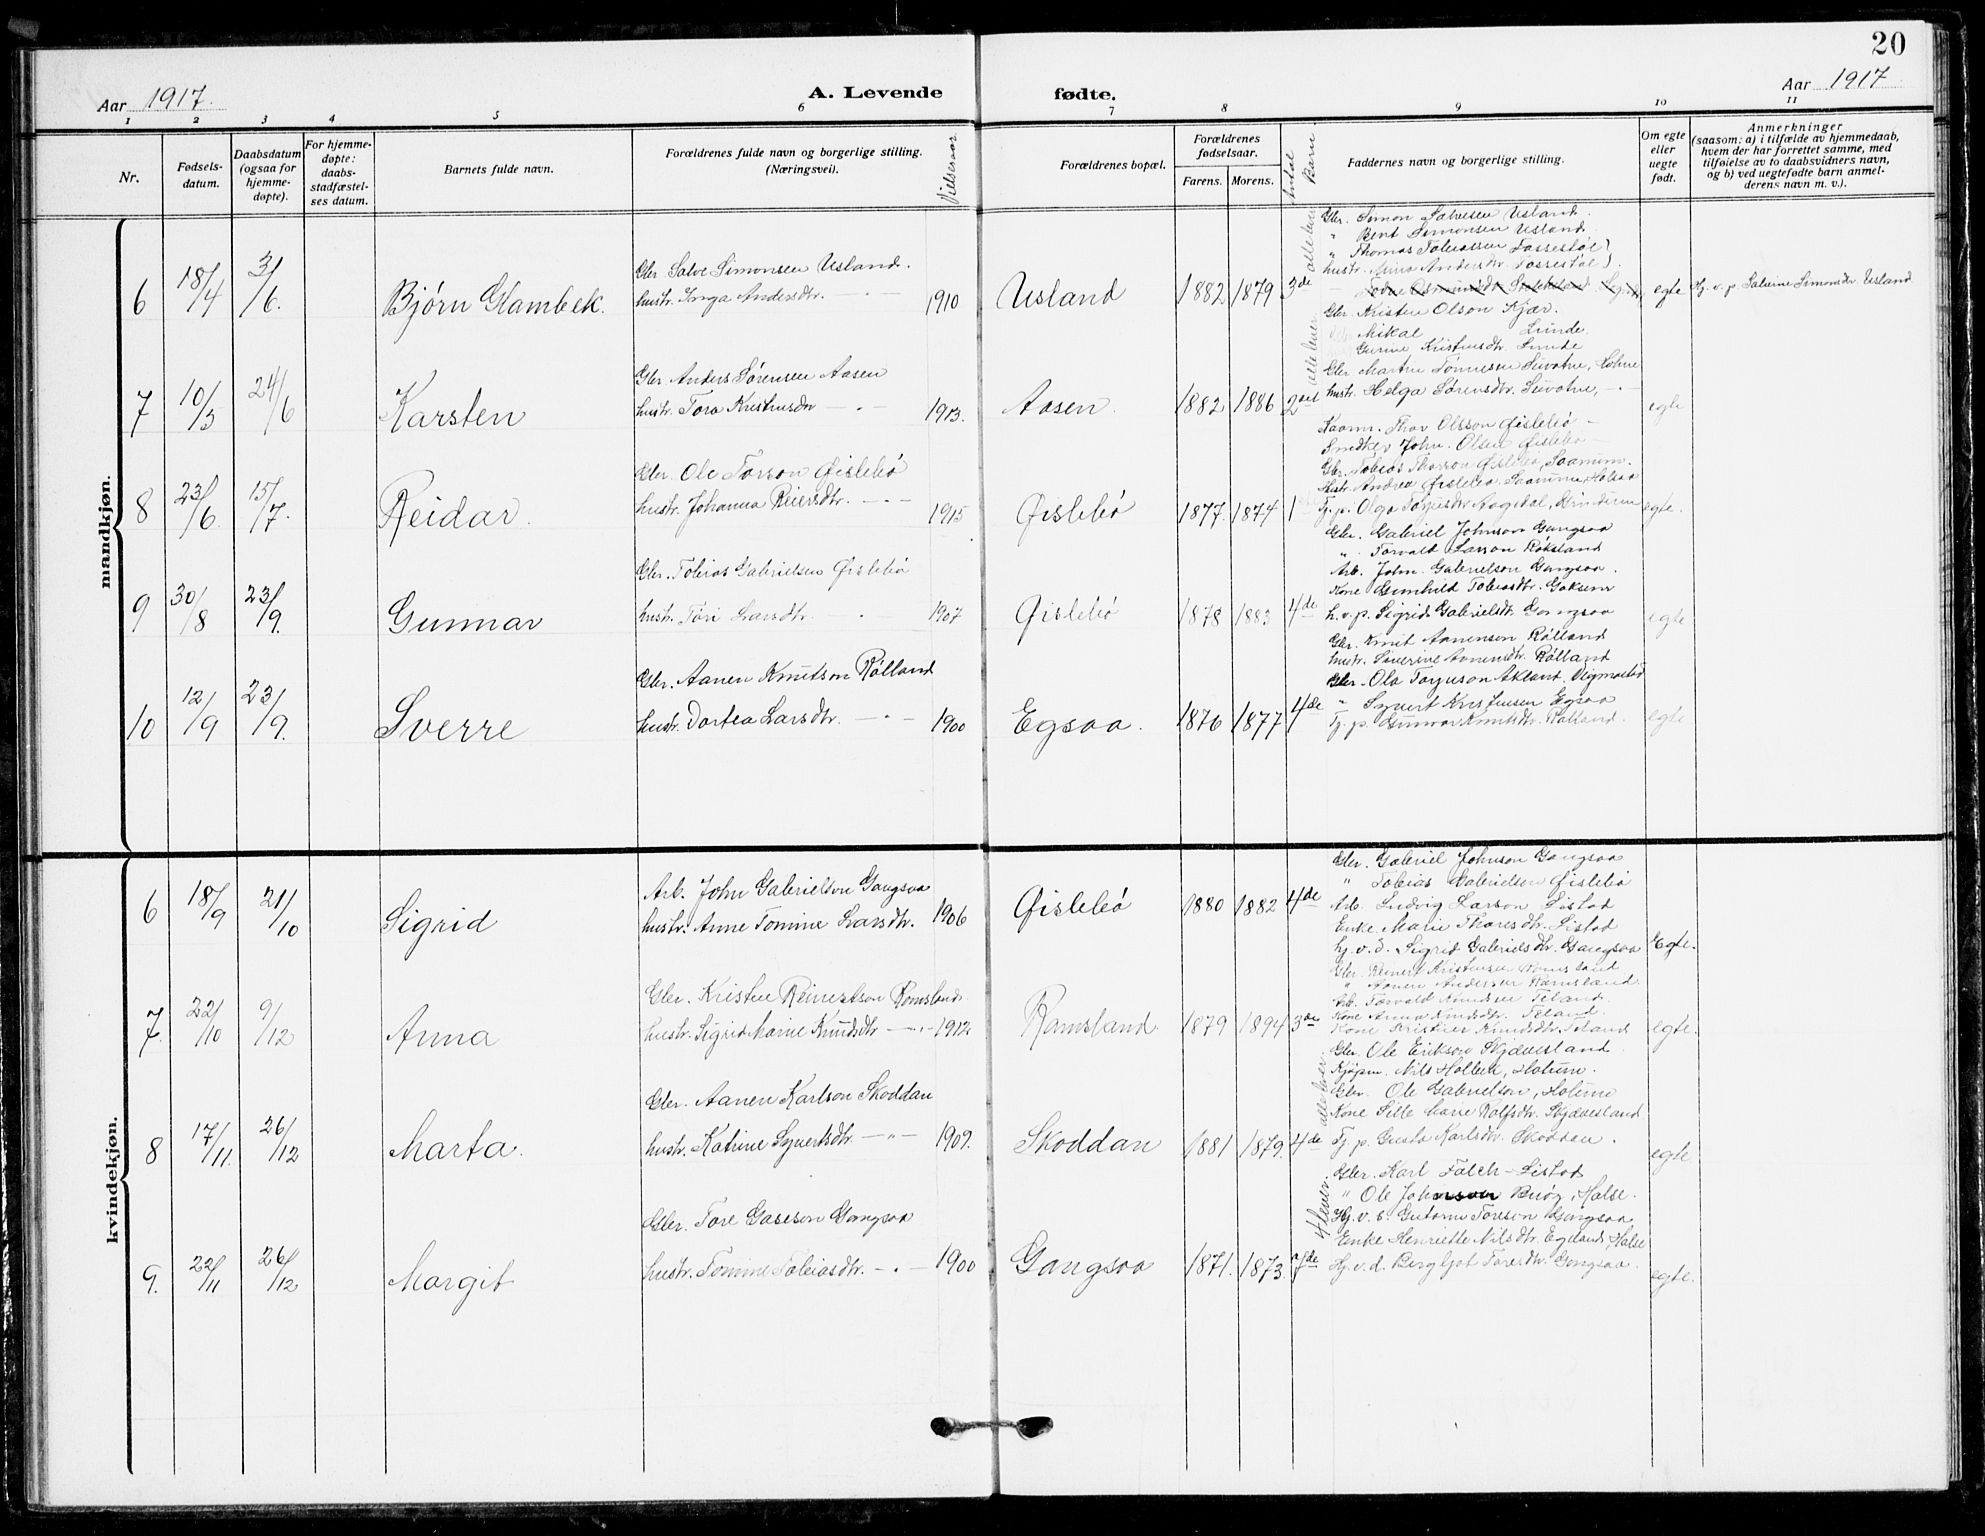 20
Aar 1917. A. Levende fødte. Aar 1917
1 2 3 4 5 6 7 8 9 10 11
Nr. Fødsels-datum. Daabsdatum (ogsaa for hjemme-døpte). For hjemme-døpte: daabs-stadfæstel-ses datum. Barnets fulde navn. Forældrenes fulde navn og borgerlige stilling. (Næringsvei). Vielsesaar Forældrenes bopæl. Forældrenes fødselsaar. Farens. Morens. Antal Barn Faddernes navn og borgerlige stilling. Om egte eller uegte født. Anmerkninger (saasom: a) i tilfælde av hjemmedaab, hvem der har forrettet samme, med tilføielse av to daabsvidners navn, og b) ved uegtefødte barn anmel-derens navn m. v.).
mandkjøn.
6 18/4 3/6. Bjørn Glambek.
Gbr Salve Simonsen Usland.
hustr. Inga Andersdtr. - " - 1910 Usland 1882 1879 3de alle lever egte Hj. v. p. Salvine Simonsdtr. Usland
Gbr. Simon Salvesen Usland.
" Bent Simonsen Usland.
" Thomas Tobiassen Fossestøl
hustr. Anna Andersdtr Fossestøl
7 10/5 24/6 Karsten
Gbr Anders Sørensen Aasen
hustr. Tora Kristensdtr - " - 1913. Aasen. 1882 1886 2det alle lever egte
Gbr. Kristen Olson Kjær.
Mikal Lunde.
Gurine Kristensdtr. Lunde
Gbr Martin Tønnesen
hustr. Helga Sørensdtr.
8 23/6. 15/7. Reidar.
Gbr. Ole Torson Øislebø
hustr. Johanna Reiersdtr. - " - 1915 Øislebø 1877 1874 1 egte.
Kaarm. Thor Olsson Øislebø -
John Olsen Øislebø -
Gbr. Tobias Thorson Øislebø,
Hustr. Andrea Øislebø
Tj. p. Olga
9 30/8 23/9. Gunnar
Gbr. Tobias Gabrielsen Øislebø
hustr. Tori Larsdtr. - " - 1907 Øislebø 1878 1883 4de egte
Gbr. Gabriel Johnson Gangsaa
" Torvald Larson Røksland
Arb. John Gabrielson Gangsaa.
Kone Gunhild Tobiasdtr.
h. v. p. Sigrid Gabrielsdtr. Gangsaa
10 12/9 23/9. Sverre
Gbr. Aanen Knutson Rølland
hustr. Dortea Larsdtr. - " - 1900 Egsaa. 1876 1877 4de egte
Gbr. Knut Aanenson Rølland
hustr. Severine Aanensdtr. Rølland
Gbr. Ola
" Syvert Kristensen Egsaa
Tj. p. Gunvor Knutsdtr. Rølland.
kvindekjøn.
6 18/9 21/10 Sigrid
Arb. John Gabrielson Gangsaa
hustr. Anne Tomine Larsdtr. 1906 Øislebø 1880 1882 4de Egte.
Gbr. Gabriel Johnson Gangsaa
" Tobias Gabrielson Øislebø
Arb. Ludvig Larson Listad
Enke Marie Thoresdtr. Listad
hj. v. d. Sigrid Gabrielsdtr. Gangsaa
7. 22/10 9/12 Anna
Gbr. Kristen Reinertson Romsland.
hustr. Sigrid Marie Knudsdtr - " - 1912 Ramsland 1879 1894 3de egte.
Gbr. Reinert Kristensen Romsland
" Aanen Andersen Ramsland.
Arb. Torvald Knudsen
Kone Anna Knudsdtr.
Kone Kristine Knudsdtr.
8 17/11. 26/12 Marta.
Gbr. Aanen Karlson Skoddan
hustr. Katrine Syvertsdtr. - " - 1909. Skoddan 1881 1879. 4de alle lever egte
Gbr. Ole Erikson Skjævesland.
Kjøpm. Nils Holbek, Holum.
Gbr. Ole Gabrielson, Holum
Kone Sille Marie Rolfsdtr. Skjævesland
Tj. p. Gusta Karlsdtr. Skoddan.
9. 22/11 26/12 Margit
Gbr. Tore Gaseson Gangsaa
hustr. Tomine Tobiasdtr. - " - 1900 Gangsaa 1871. 1873. 7de 4 lever. egte.
Gbr. Karl Falch - Listad
" Ole Johnson Buøy, Halse.
Hj. v. s. Gutorm Toreson Gangsaa
Enke Henriette Nilsdtr. Egeland, Halse
Hj. v. d. Bergljot Toresdtr. Gangsaa.